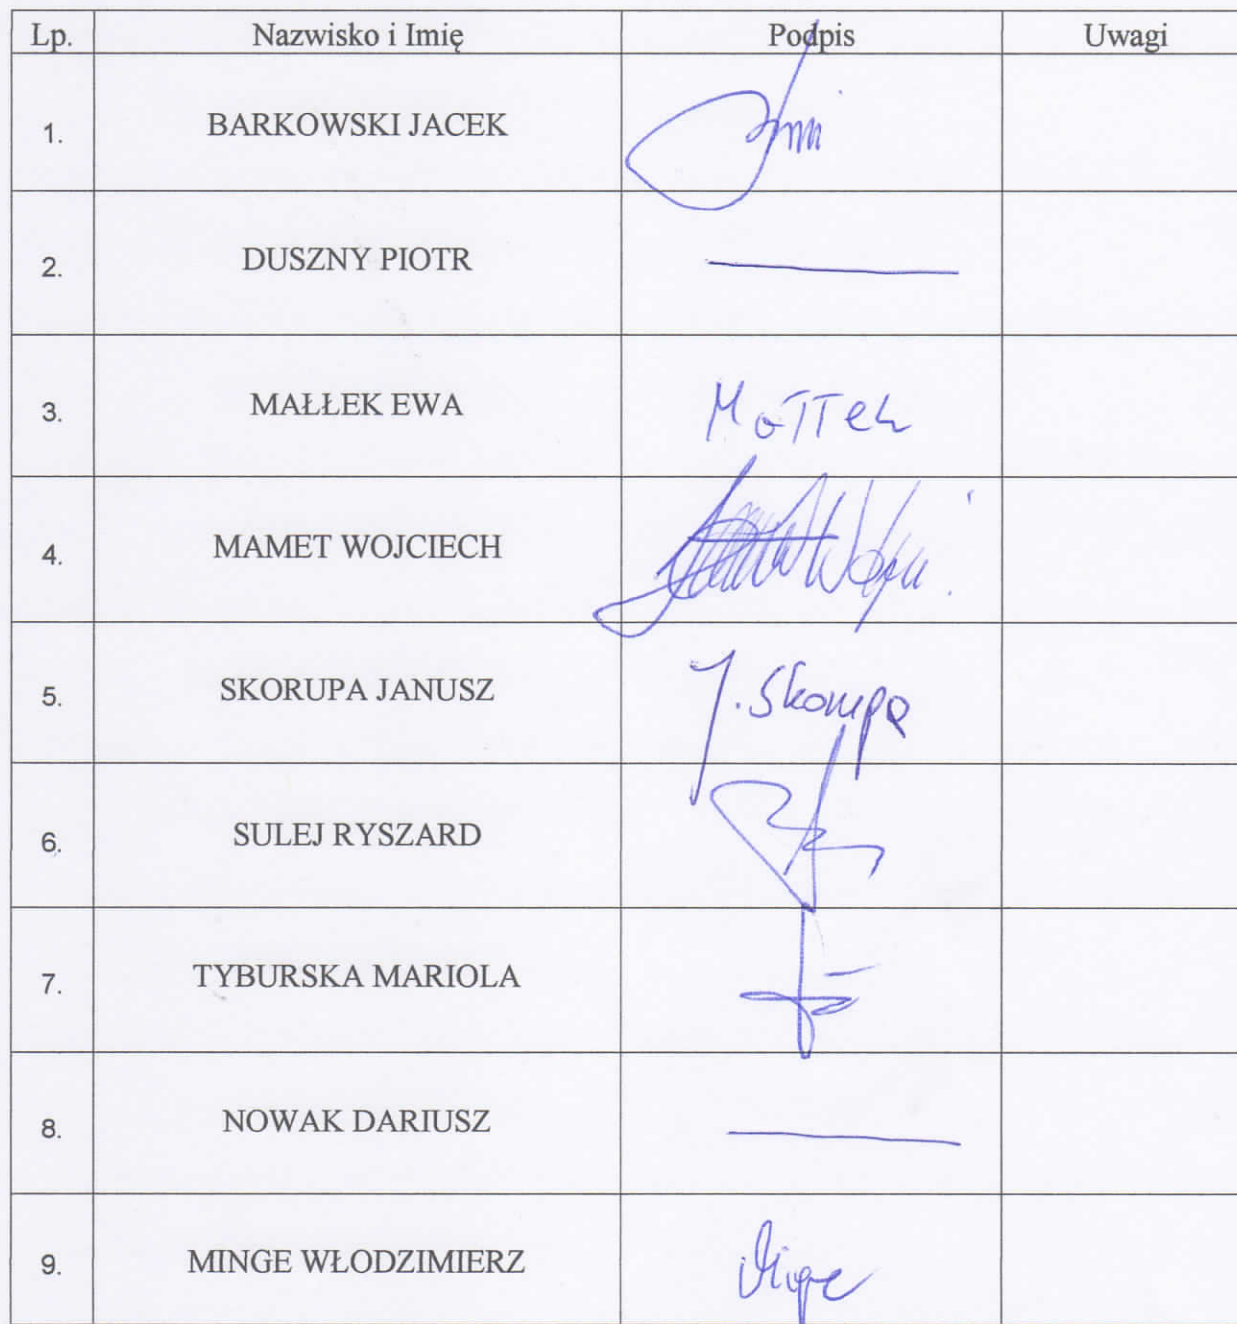 Lp. Nazwisko i Imię Podpis Uwagi
1. BARKOWSKI JACEK
2. DUSZNY PIOTR
3. MAŁŁEK EWA Małłek
4. MAMET WOJCIECH
5. SKORUPA JANUSZ J. Skorupa
6. SULEJ RYSZARD
7. TYBURSKA MARIOLA
8. NOWAK DARIUSZ
9. MINGE WŁODZIMIERZ Minge